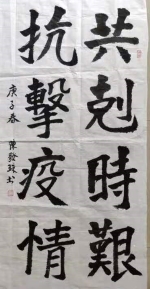 共剋時艱
抗擊疫情
庚子春
陳發珠書